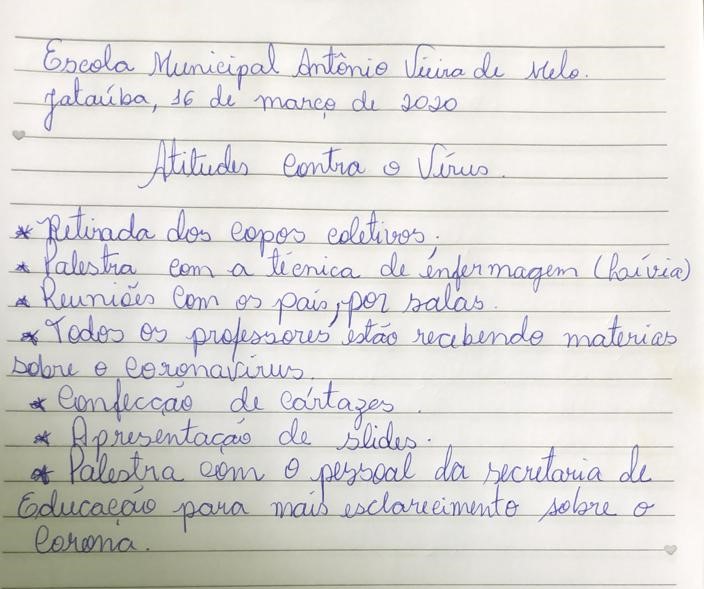 Escola Municipal Antônio Vieira de Melo.
Jataúba, 16 de março de 2020
Atitudes contra o Vírus.
* Retirada dos copos coletivos;
* Palestra com a técnica de enfermagem (Laívia)
* Reuniões com os pais, por salas.
* Todos os professores estão recebendo materias
sobre o coronavírus.
* Confecção de cartazes.
* Apresentação de slides.
* Palestra com o pessoal da secretaria de
Educação para mais esclarecimento sobre o
Corona.